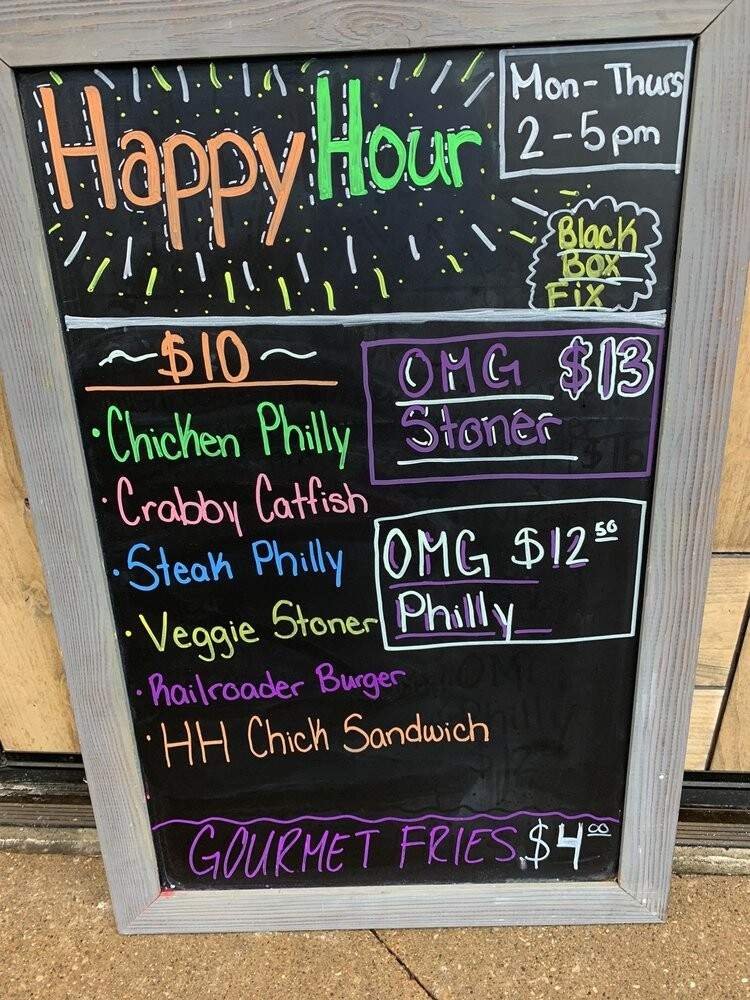 Happy Hour
Mon-Thurs
2-5pm
Black
Box
Fix
~$10~
• Chicken Philly
• Crabby Catfish
• Steak Philly
• Veggie Stoner
• Railroader Burger
• HH Chick Sandwich
OMG $13
Stoner
OMG $12 50
Philly
GOURMET FRIES $4 00